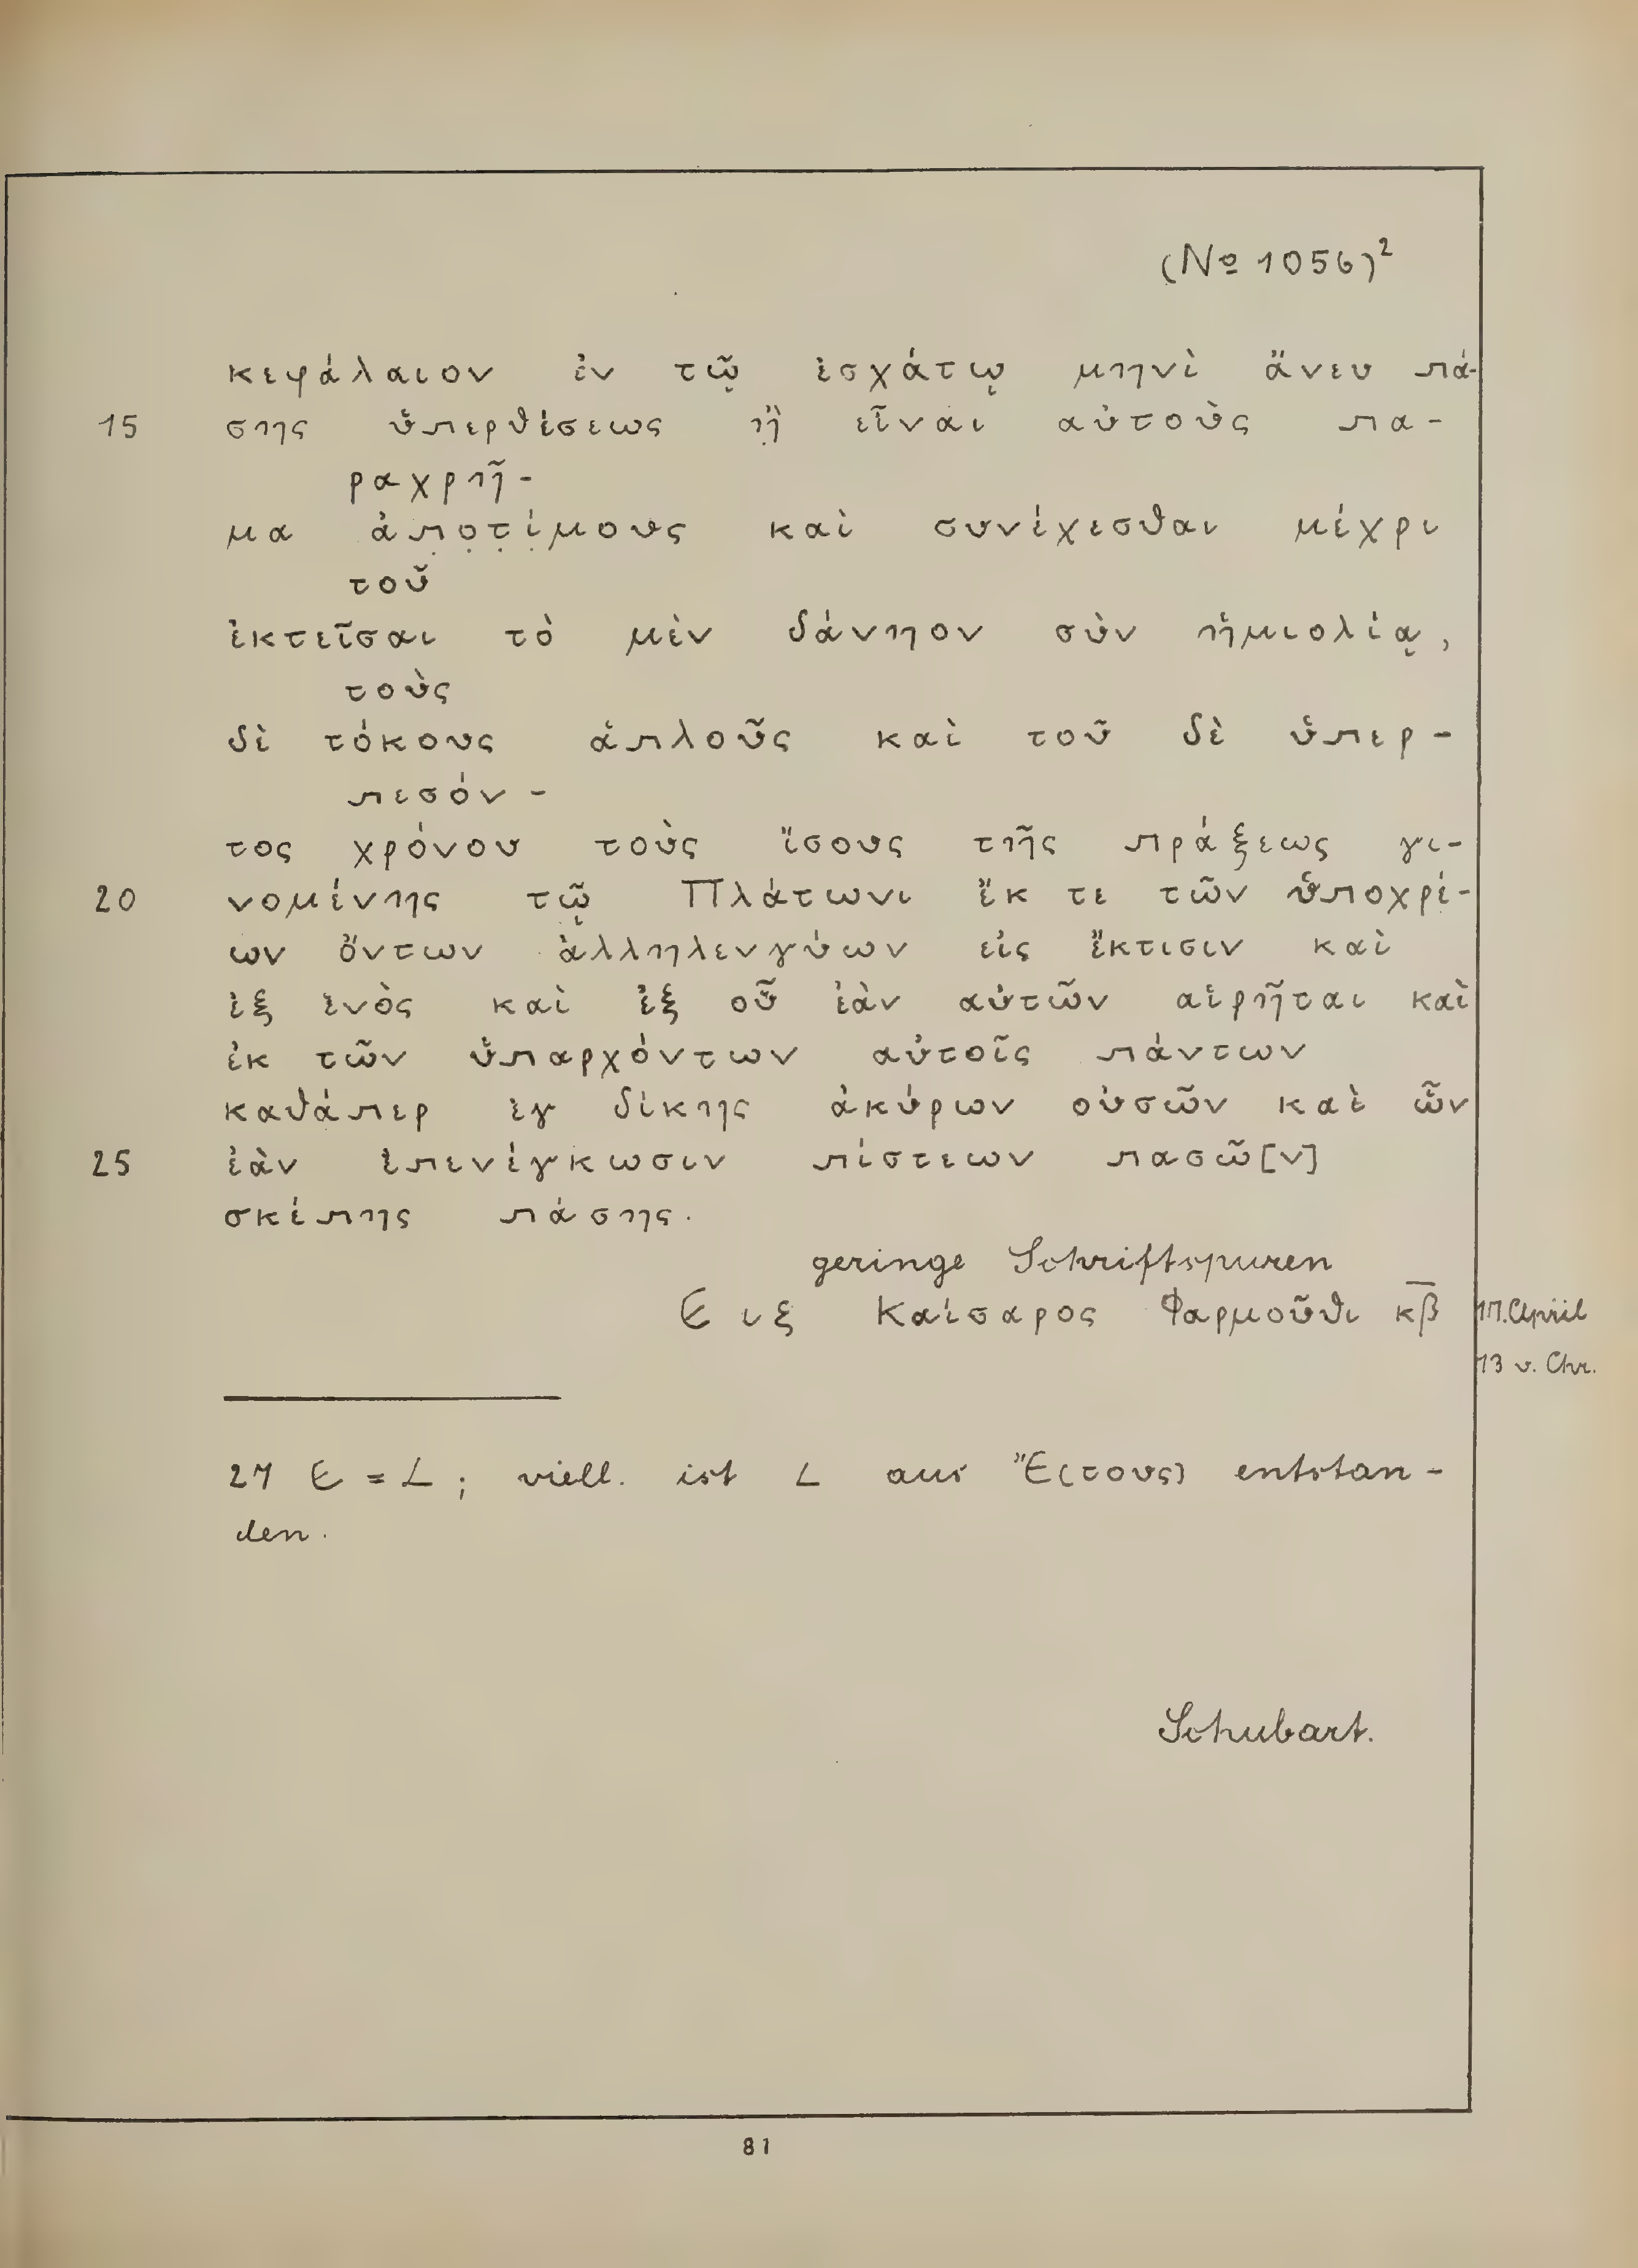 (No 1056)²
κεφάλαιον ἐν τῷ ἐσχάτῳ μηνὶ ἄνευ πά-
15 σης ὑπερθέσεως ἢ̣ εἶναι αὐτοὺς πα-
ραχρῆ-
μα ἀπ̣ο̣τ̣ί̣μους καὶ συνέχεσθαι μέχρι
τοῦ
ἐκτεῖσαι τὸ μὲν δάνηον σὺν ἡμιολίᾳ,
τοὺς
δὲ τόκους ἁπλοῦς καὶ τοῦ δὲ ὑπερ-
πεσόν-
τος χρόνου τοὺς ἴσους τῆς πράξεως γι-
20 νομένης τῷ Πλάτωνι ἔκ τε τῶν ὑποχρέ-
ων ὄντων ἀλληλενγύων εἰς ἔκτισιν καὶ
ἐξ ἑνὸς καὶ ἐξ οὗ ἐὰν αὐτῶν αἱρῆται καὶ
ἐκ τῶν ὑπαρχόντων αὐτοῖς πάντων
καθάπερ ἐγ δίκης ἀκύρων οὐσῶν καὶ ὧν
25 ἐὰν ἐπενέγκωσιν πίστεων πασῶ[ν]
σκέπης πάσης.
geringe Schriftspuren
Ε ιξ Καίσαρος Φαρμοῦθι κ̅β̅ 17. April
13 v. Chr.
27 Ε = L; viell. ist L aus Ἔ(τους) entstan-
den.
Schubart.
81